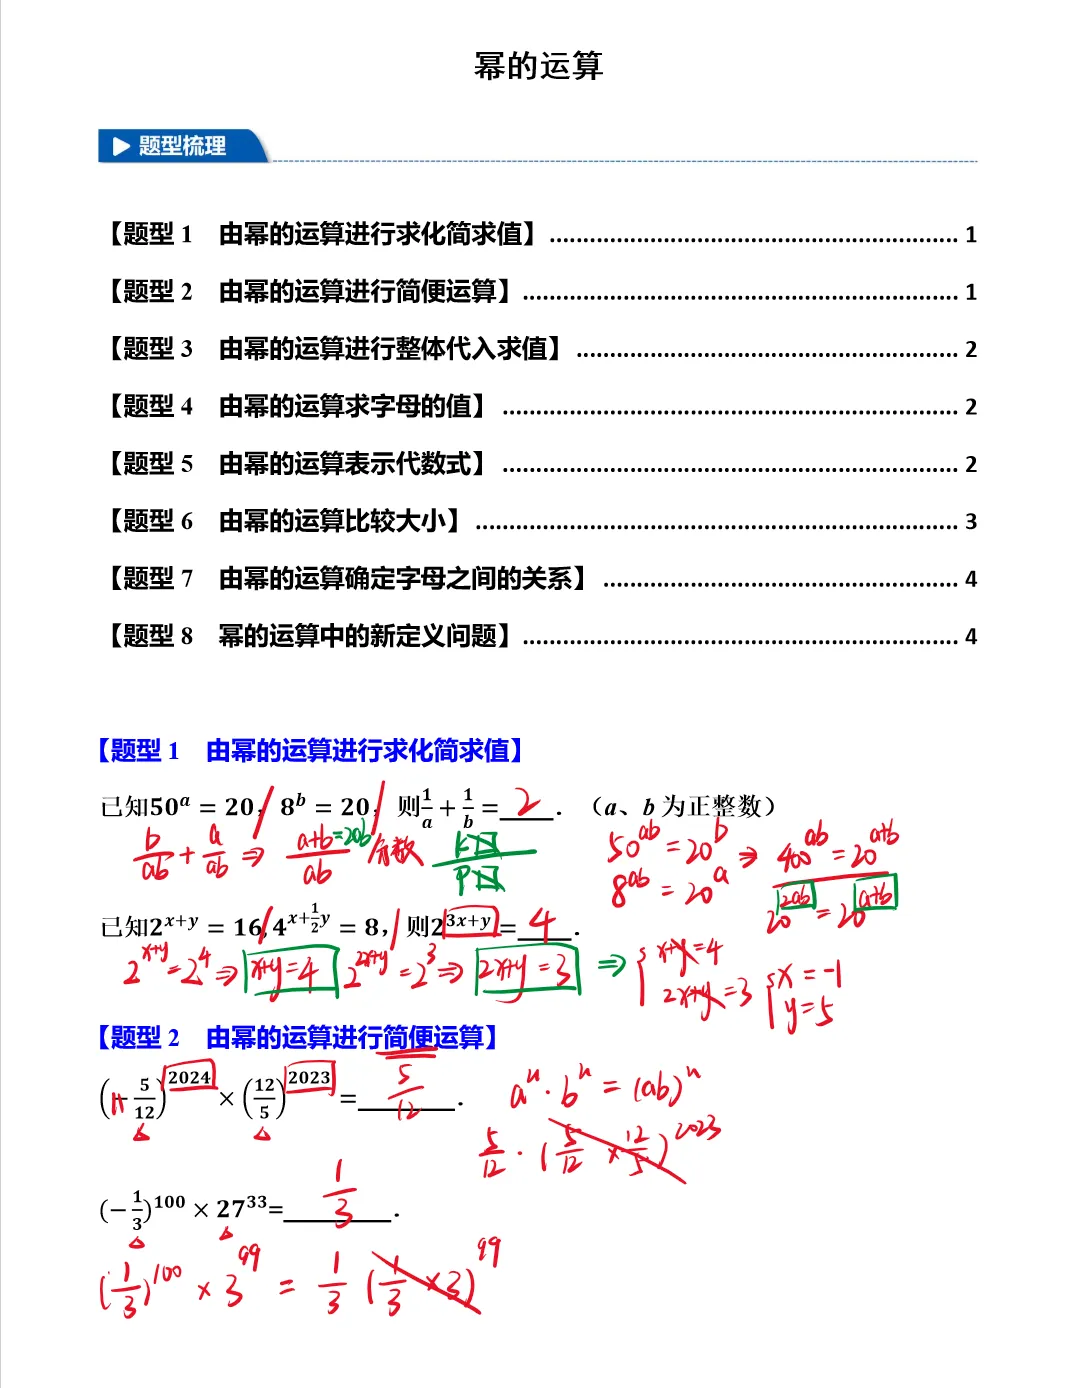 幂的运算
题型梳理
【题型 1 由幂的运算进行求化简求值】 1
【题型 2 由幂的运算进行简便运算】 1
【题型 3 由幂的运算进行整体代入求值】 2
【题型 4 由幂的运算求字母的值】 2
【题型 5 由幂的运算表示代数式】 2
【题型 6 由幂的运算比较大小】 3
【题型 7 由幂的运算确定字母之间的关系】 4
【题型 8 幂的运算中的新定义问题】 4
【题型 1 由幂的运算进行求化简求值】
已知50^a = 20，8^b = 20，则1/a + 1/b = 2．（a、b 为正整数）
b/ab + a/ab ⇒ (a+b)/ab =2ab 分数 k□/p□
50^ab = 20^b ⇒ 400^ab = 20^(a+b)
8^ab = 20^a 20^(2ab) = 20^(a+b)
已知2^(x+y) = 16,4^(x+1/2y) = 8，则2^(3x+y)= 4．
2^(x+y) = 2^4 ⇒ x+y=4 2^(2x+y) = 2^3 ⇒ 2x+y=3 ⇒ { x+y=4
2x+y=3 { x=-1
y=5
【题型 2 由幂的运算进行简便运算】
(- 5/12)^2024 × (12/5)^2023 = 5/12． a^n · b^n = (ab)^n
5/12 · (5/12 × 12/5)^2023
(−1/3)^100 × 27^33= 1/3．
(1/3)^100 × 3^99 = 1/3 (1/3 × 3)^99